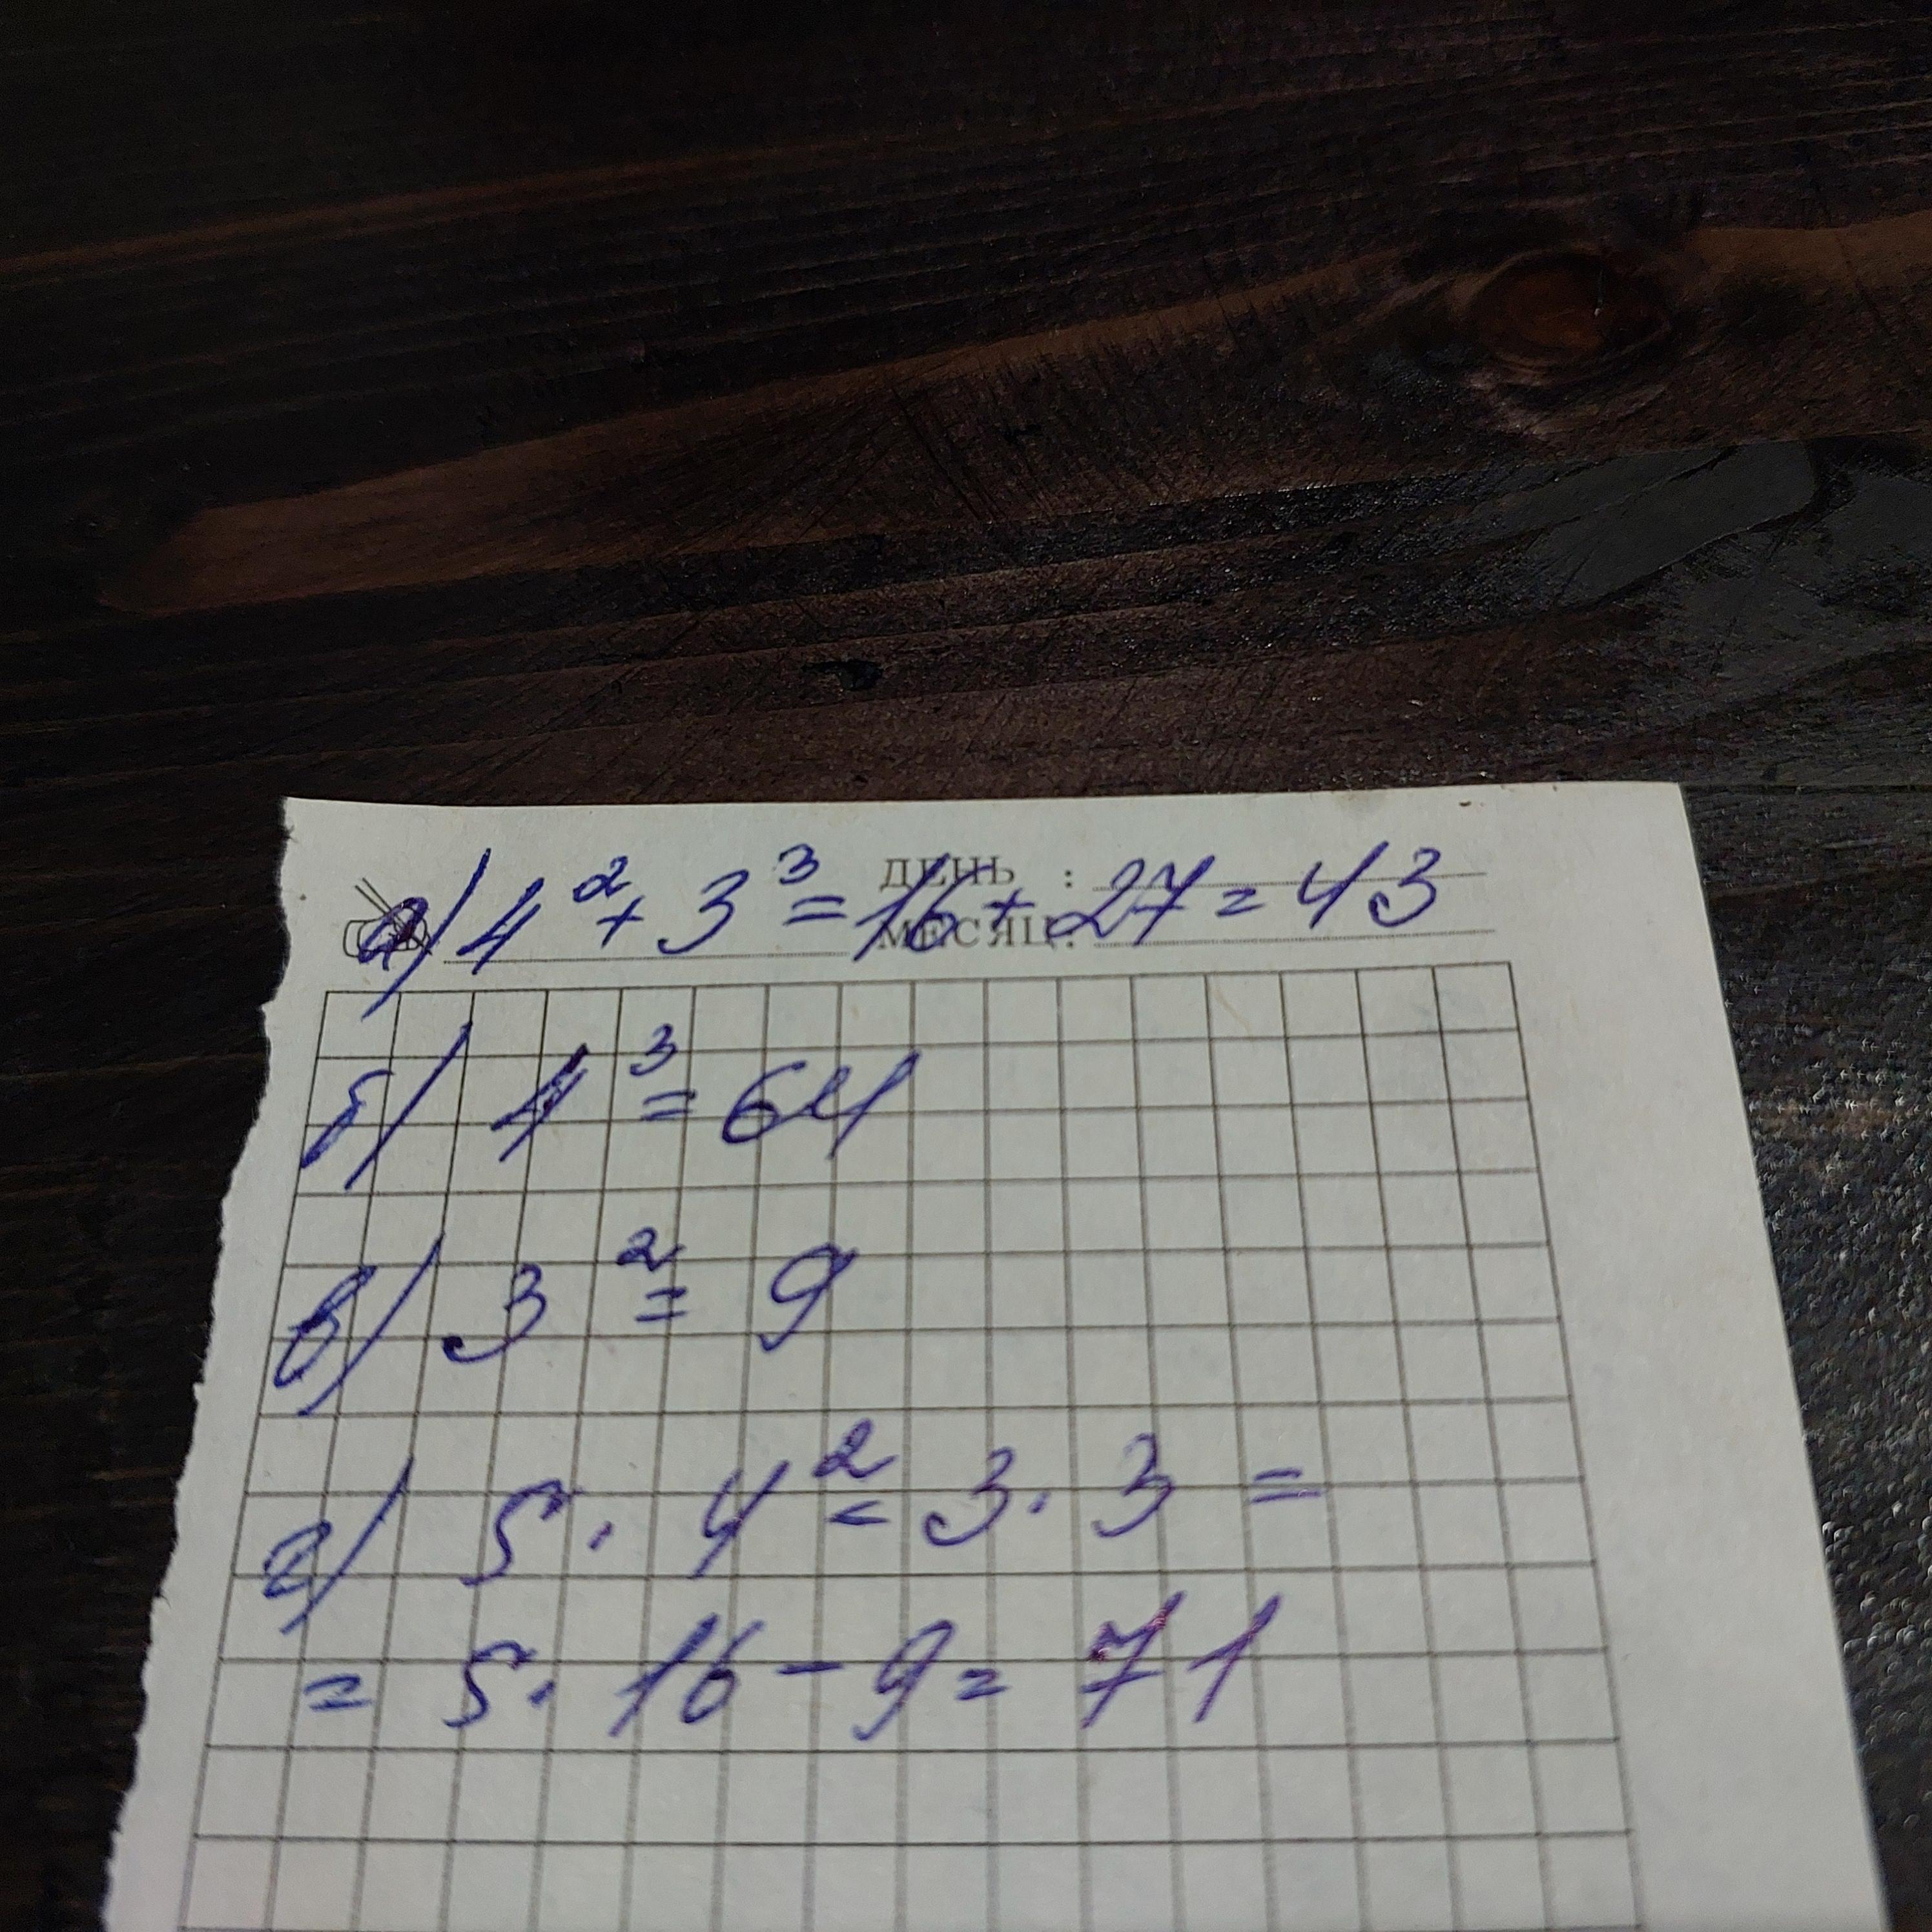 ДЕНЬ :
МЕСЯЦ:
а) 4² + 3³ = 16 + 27 = 43
б) 4³ = 64
в) 3² = 9
г) 5 · 4² - 3 · 3 =
= 5 · 16 - 9 = 71